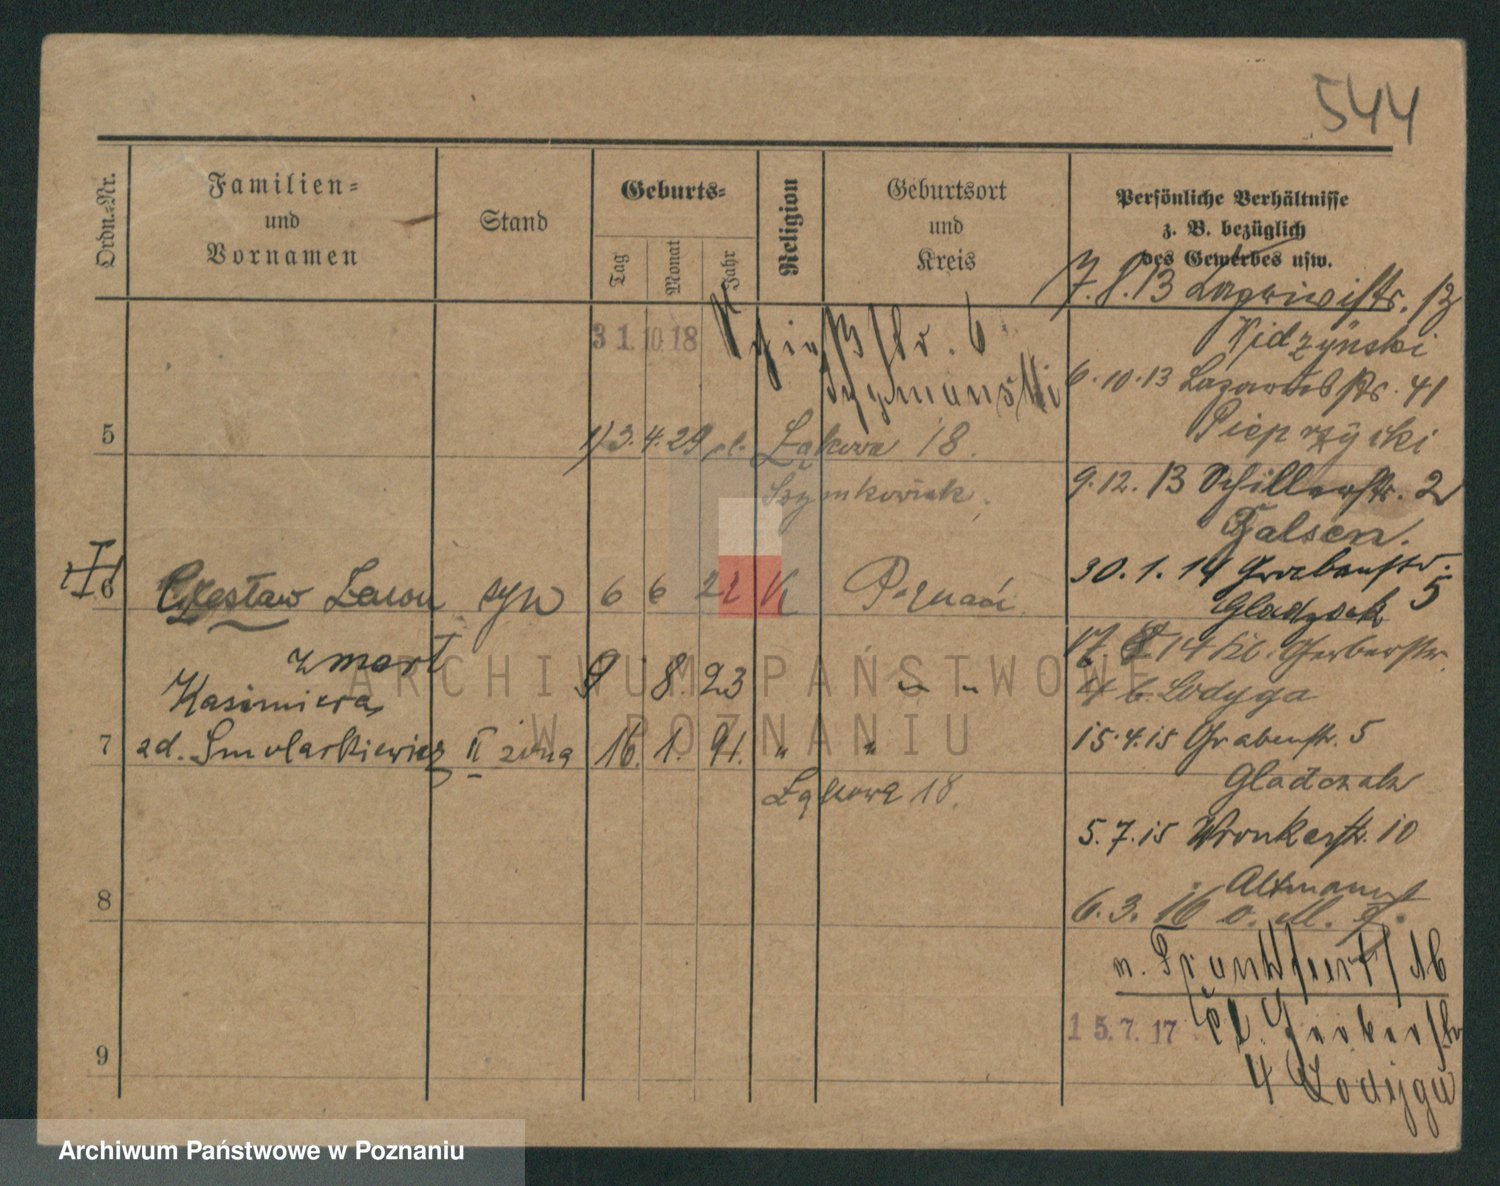 544
Ordn.-Nr.
Familien-
und
Vornamen
Stand
Geburts-
Tag
Monat
Jahr
Religion
Geburtsort
und
Kreis
Persönliche Verhältnisse
z. B. bezüglich
des Gewerbes usw.
7.8.13
31.10.18 str. 6
Szymanski
6.10.13 41
5
3.4.29 Łąkowa 18.
Szymkowiak.
9.12.13 Schillerstr. 2
30.1.14 Grabenstr. 5
6 Czesław Leon syn 6 6 22 K Poznań
zmarł 9 8 23 " "
14 Kl. Gerberstr.
4 b. Lodyga
Kasimiera
7 zd. Smolarkiewicz II żona 16. 1. 91. " "
15.4.15 Grabenstr. 5
Łąkowa 18.
5.7.15 Wronkerstr. 10
Altmann
8
6.3.16
n. Frankfurt
15.7.17 Kl. Gerberstr
4 Lodyga
9
ARCHIWUM PAŃSTWOWE
W POZNANIU
Archiwum Państwowe w Poznaniu